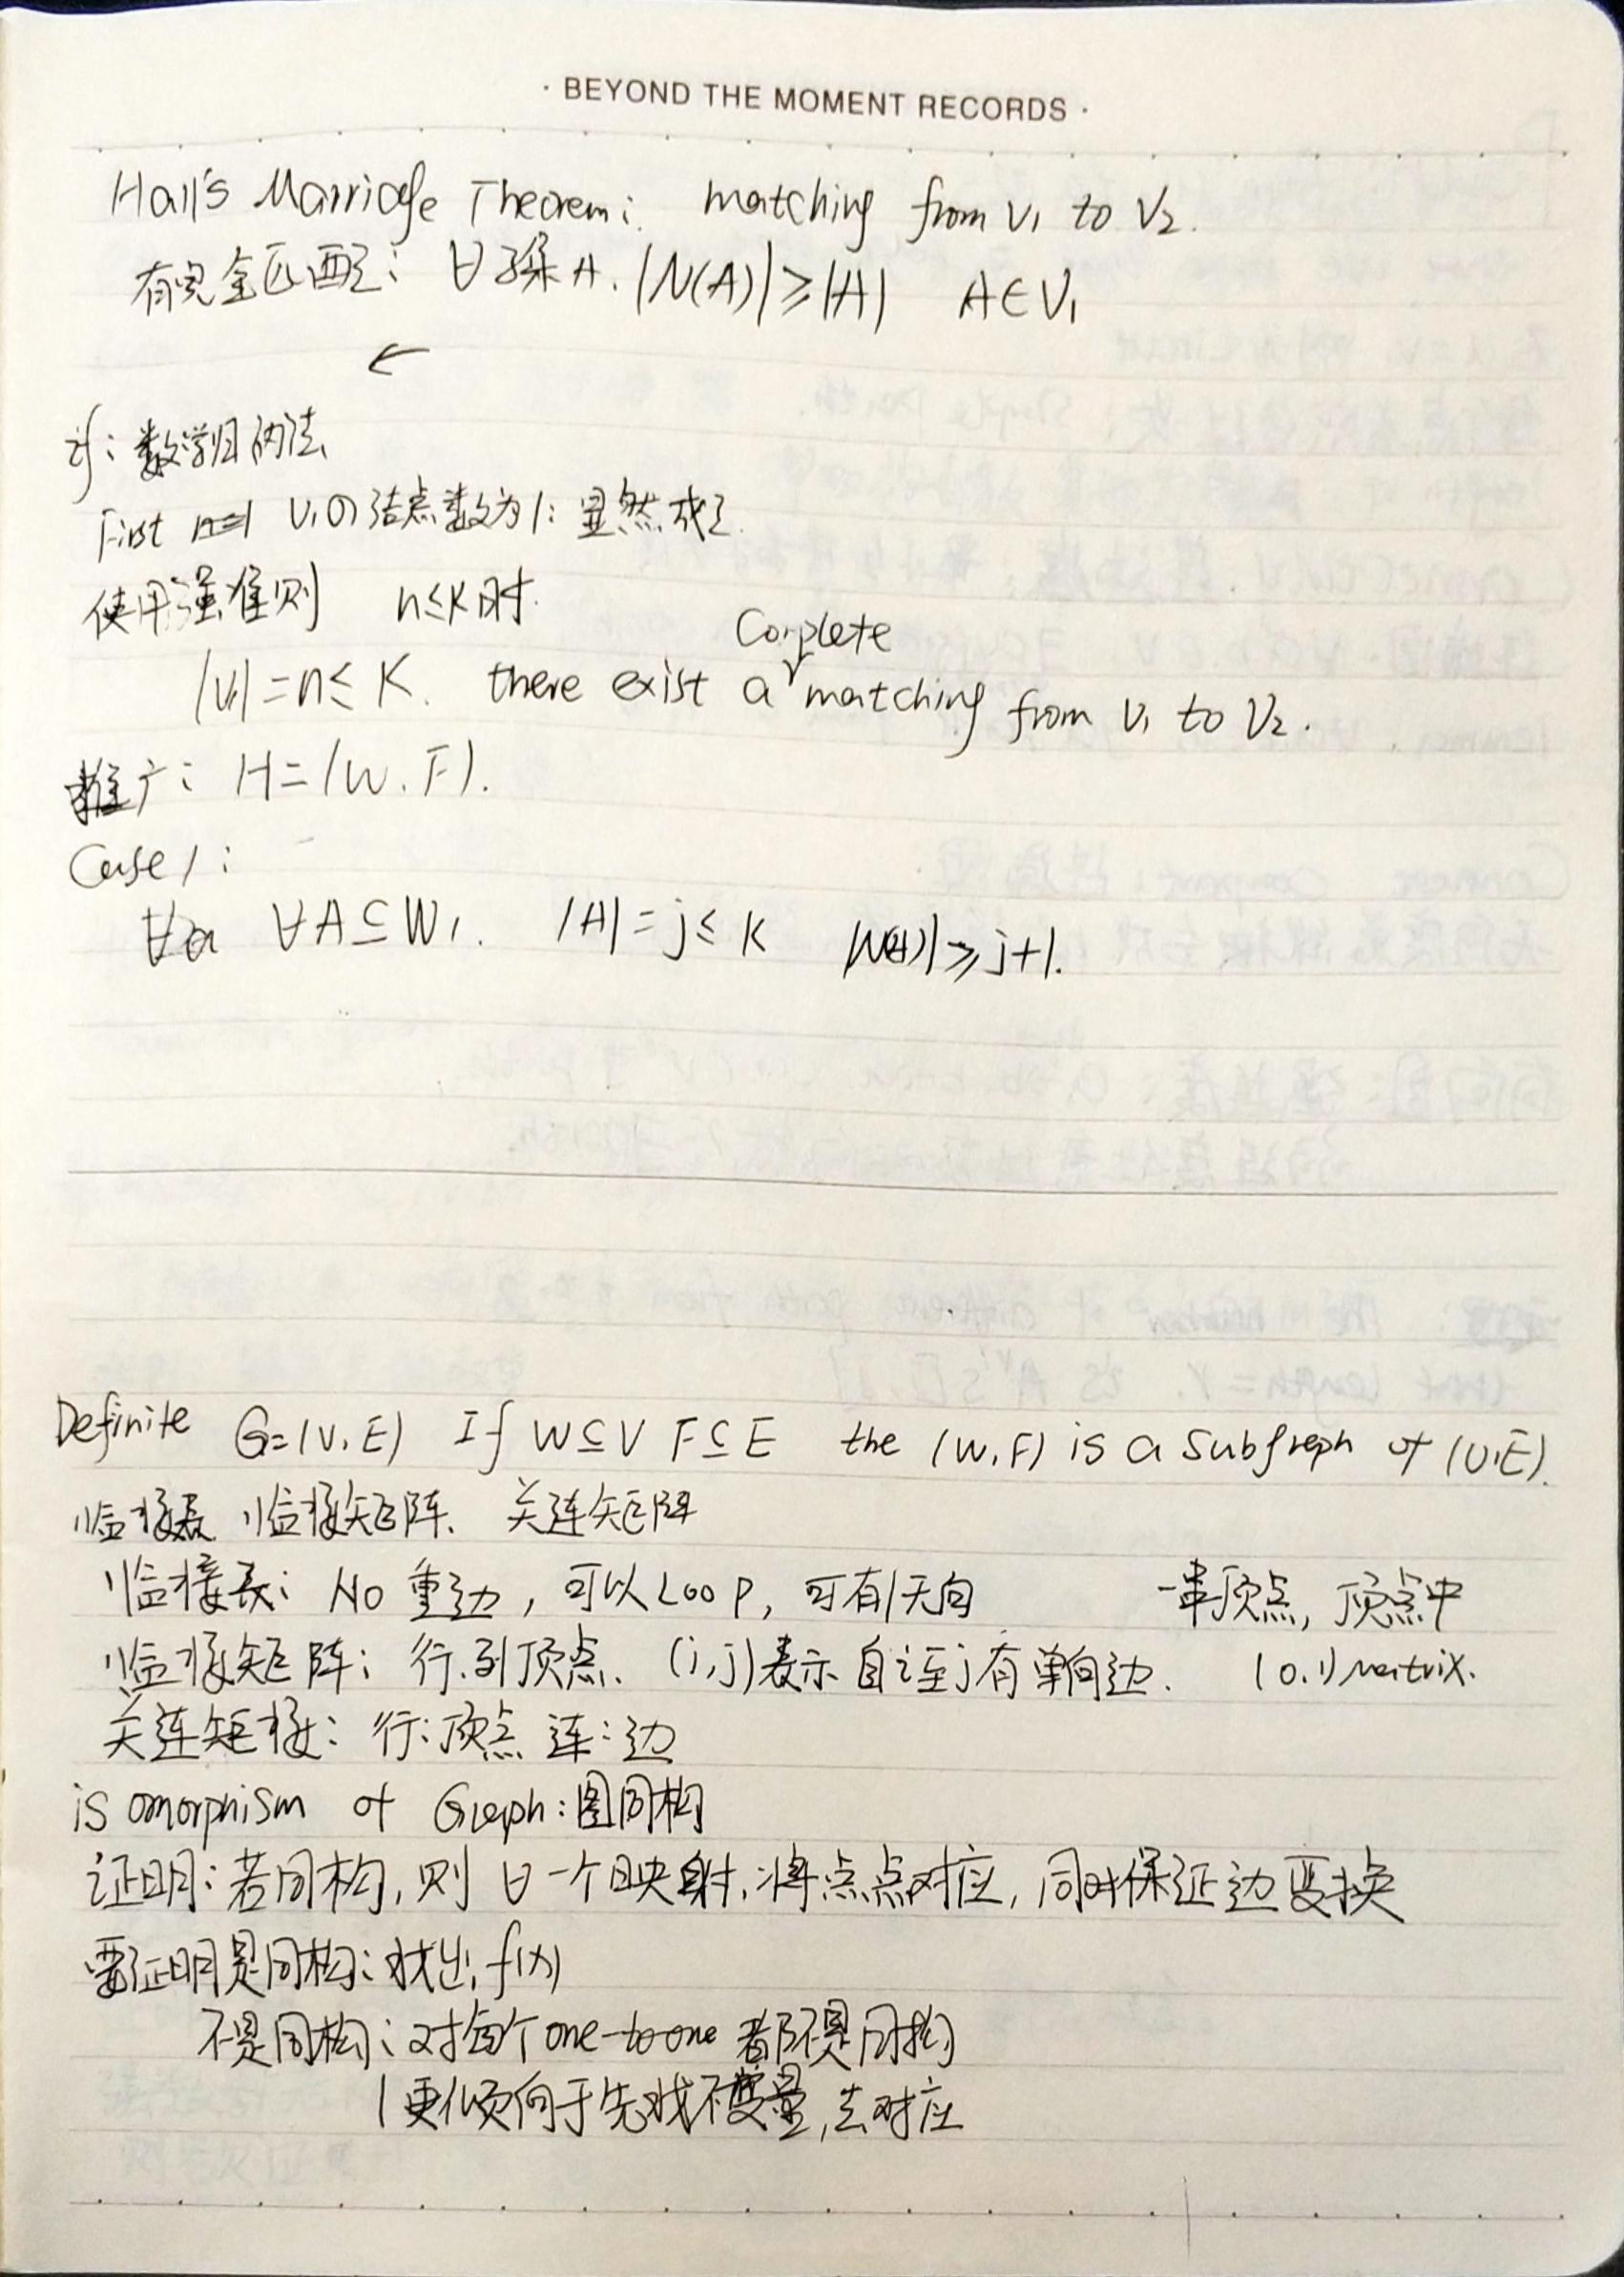 · BEYOND THE MOMENT RECORDS ·
Hall's Marriage Theorem: matching from V₁ to V₂.
有完全匹配: ∀子集A. |N(A)|≥|A| A∈V₁
←
if: 数学归纳法
First n=1 V₁の结点数为1: 显然成立.
使用强准则 n≤K时.
Complete
|V₁|=n≤K. there exist a matching from V₁ to V₂.
推广: H=(W,F).
Case 1:
∀A⊆W₁. |A|=j≤K |N(A)|≥j+1.
Definite G=(V,E) If W⊆V F⊆E the (W,F) is a Subgraph of (V,E).
临接表 临接矩阵、关连矩阵
临接表: No 重边, 可以Loop, 可有/无向 一串顶点, 顶点中
临接矩阵: 行.列顶点. (i,j)表示自i至j有单向边. (0,1) Matrix.
关连矩接: 行:顶点 连:边
isomorphism of Graph:图同构
证明: 若同构, 则∀一个映射, 将点点对应, 同时保证边变换
要证明是同构: 找出f(x)
不是同构: 对每个one-to-one都不是同构
(更倾向于先找不变量, 去对应